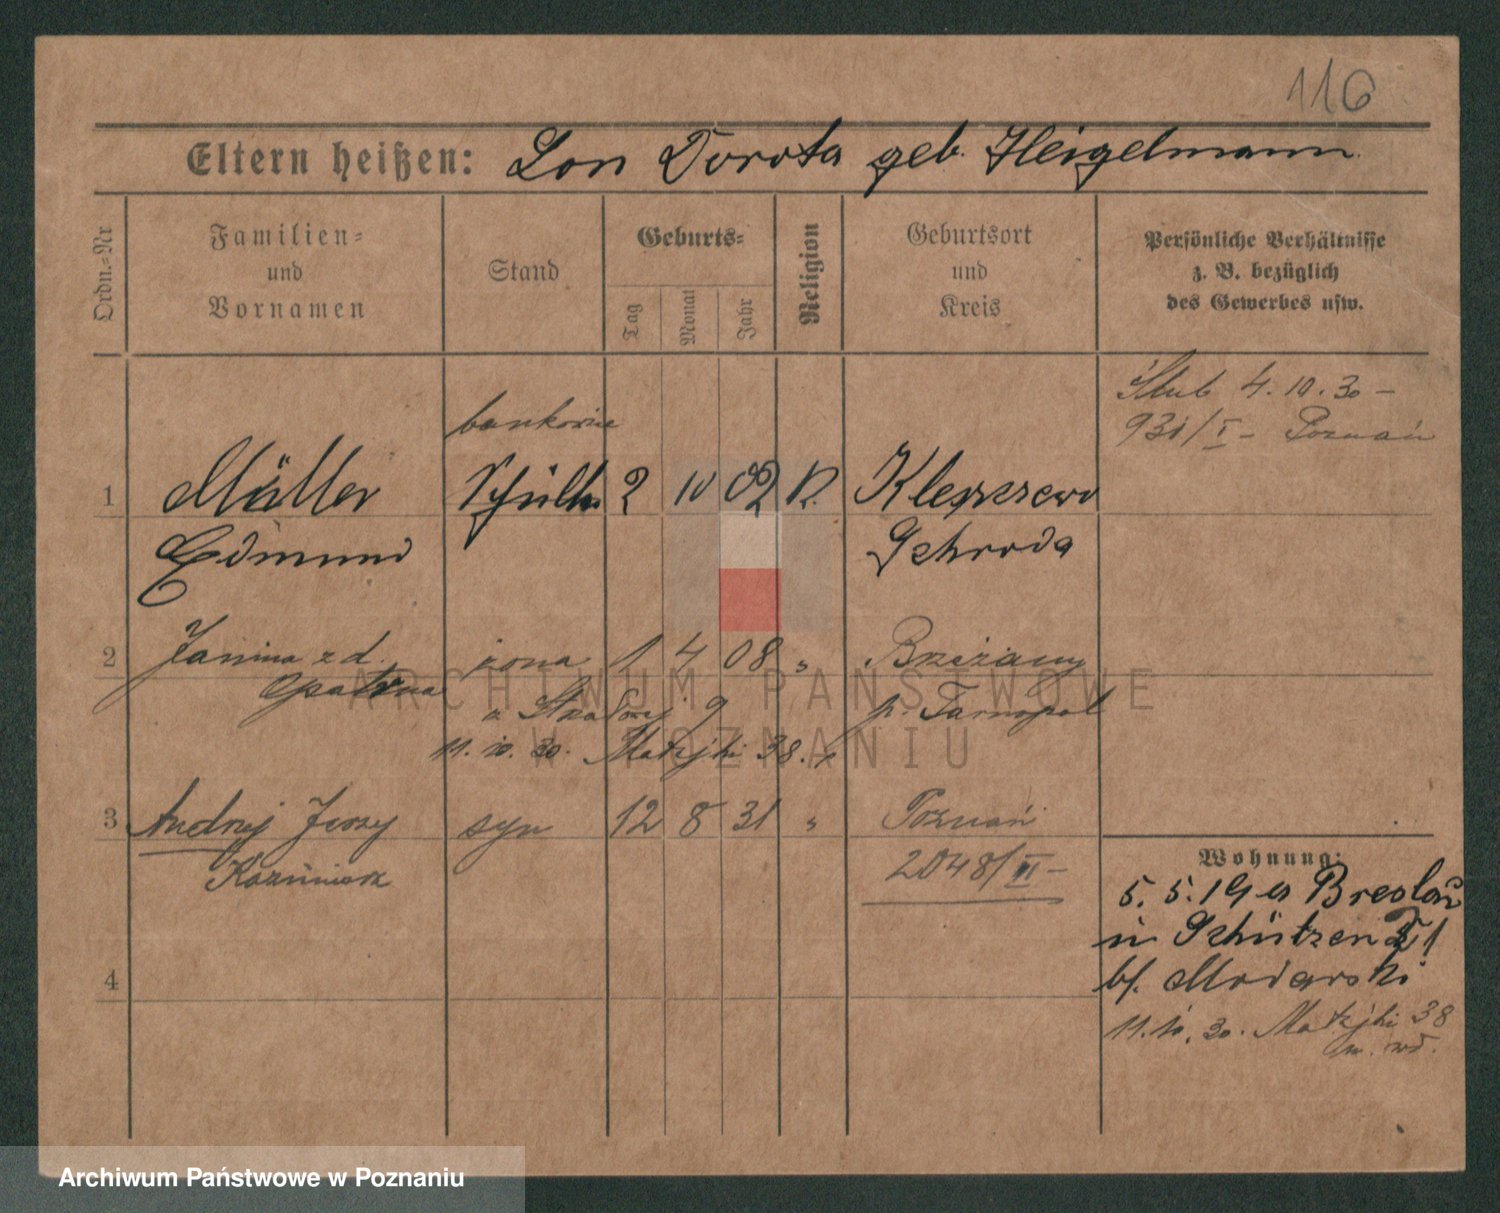 116
Eltern heißen: Lon Dorota geb. Heigelmann
Ordn.-Nr
Familien- und Vornamen
Stand
Geburts-
Tag
Monat
Jahr
Religion
Geburtsort und Kreis
Persönliche Verhältnisse z. B. bezüglich des Gewerbes usw.
Ślub 4.10.30 –
931/I – Poznań
1
Müller
Edmund
Schüler
2 10 02 K.
Schroda
2
Janina z d.
żona
1 4 08 "
Brzeżany
p. Tarnopol
11.10.30. Matejki 38.
3
Andrzej Jerzy
Kazimierz
syn
12 8 31 "
Poznań
2048/III –
4
Wohnung:
5. 5. 19 Breslau
Schützen 21
b/. Modarski
11.10.30. Matejki 38
ARCHIWUM PAŃSTWOWE
W POZNANIU
Archiwum Państwowe w Poznaniu